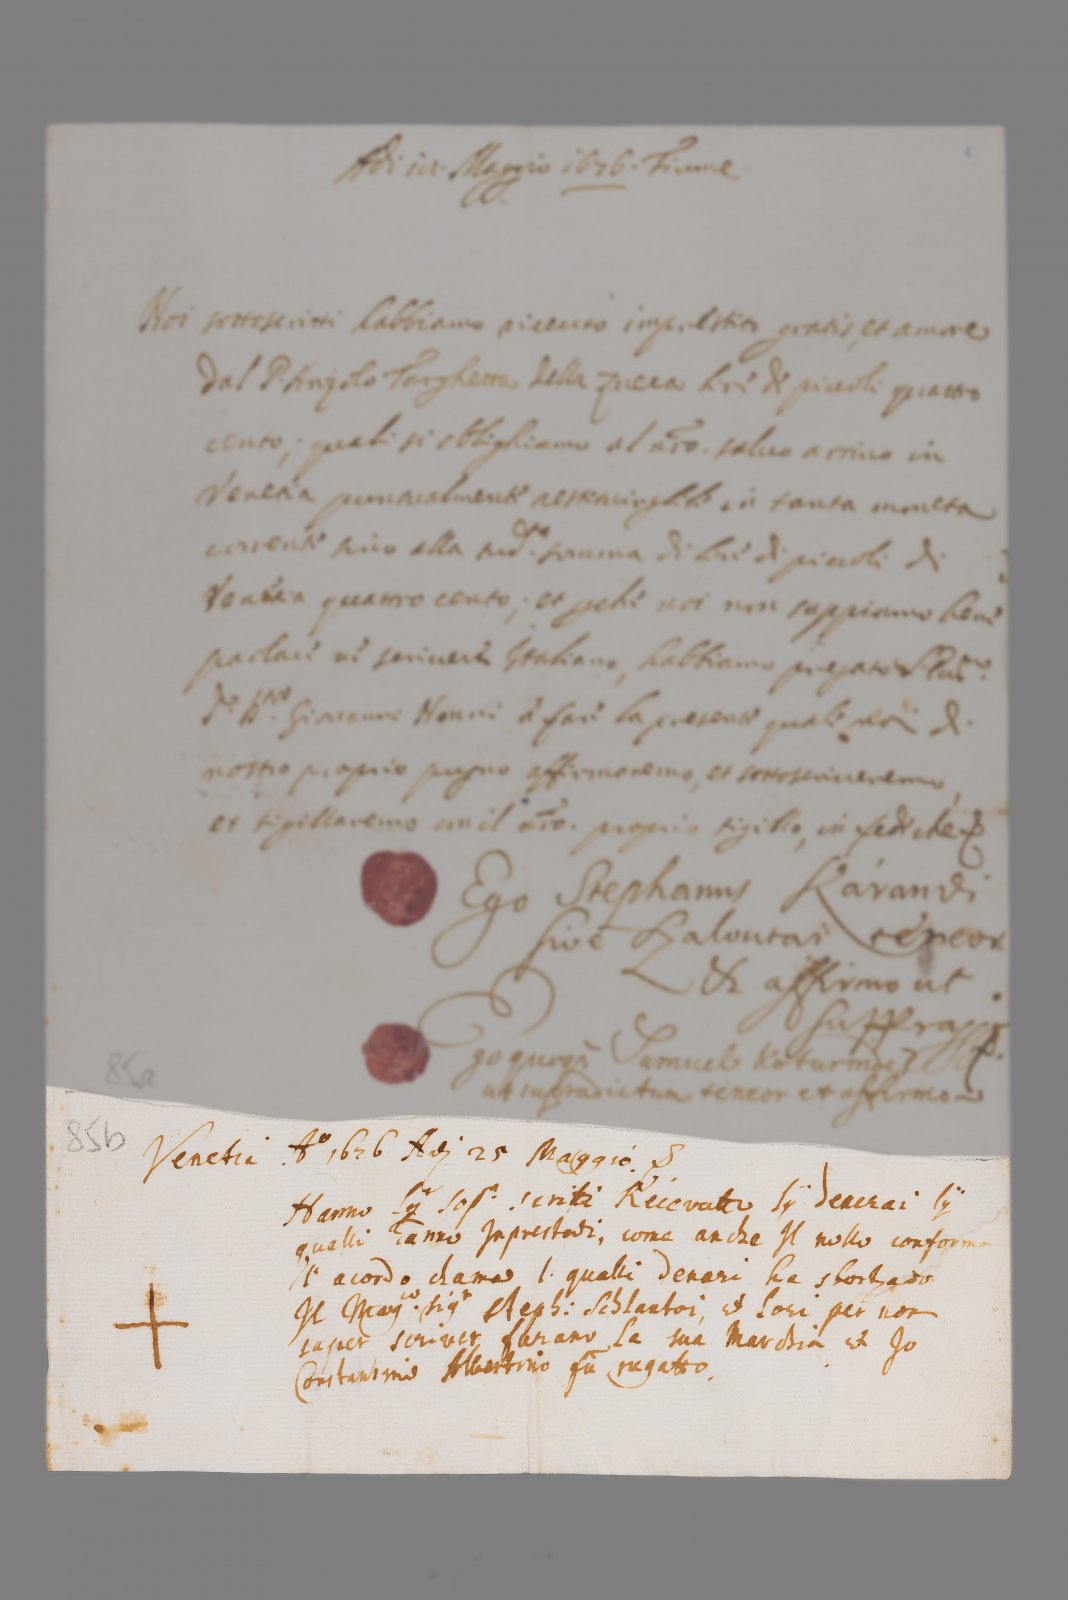 Adi in Maggio 1676. Fiume
Noi sottoscritti habbiamo riceuto imprestito gratis, et amore
dal P. Anzolo Targhetta della Zucca lire di piccoli quattro
cento; quali si oblighiamo al nro. saluo arriuo in
Venetia puntualmente restituirglile in tanta moneta
corrente sino alla sud.ta summa di lire di piccoli di
Venetia quattro cento; et perche noi non sappiamo bene
parlare ne scriuere Italiano, habbiamo pregato
Giouanni à fare la presente quale noi di
nostro proprio pugno affirmaremo, et sottoscriueremo,
et sigillaremo con il nro. proprio sigillo, in fede che
Ego Stephanus Károndi
siue teneor
& affirmo ut
supra
Ego quoq Samuel
ut supradictum teneor et affirmo
85a
85b
Venetia Ao 1676 Adj 25 Maggio.
Hanno scritti Recevutto lÿ denerai lÿ
qualli anno Inprestadi, come anche Il nollo conforme
acordo qualli denari ha sborzado
Il Mag.co Sigr Steph: & lori per non
saper scriver la sua Marchia & Jo
Constantino Albertino fu rugatto.